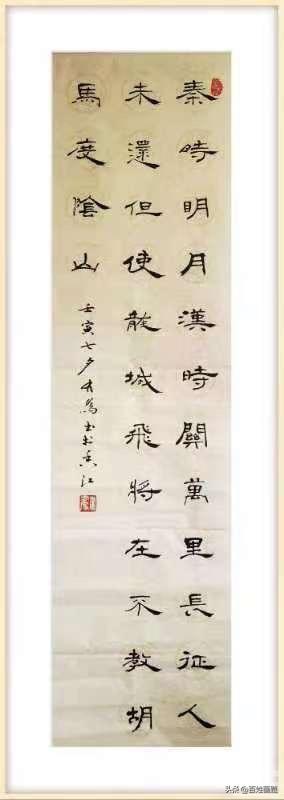 秦時明月漢時關萬里長征人
未還但使龍城飛將在不教胡
馬度陰山
壬寅七夕為书於香江
头条